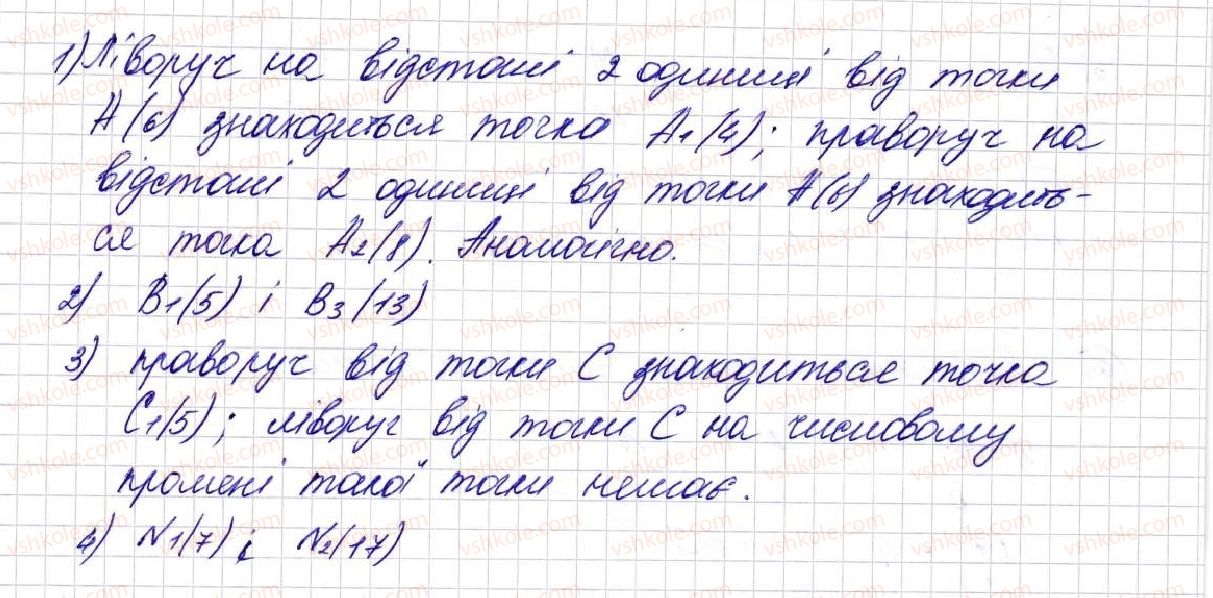 1) Ліворуч на відстані 2 одиниці від точки
A(6) знаходиться точка A1(4); праворуч на
відстані 2 одиниці від точки A(6) знаходить-
ся точка A2(8). Аналогічно.
2) B1(5) і B3(13)
3) праворуч від точки C знаходиться точка
C1(5); ліворуч від точки C на числовому
промені такої точки немає.
4) N1(7) і N2(17)